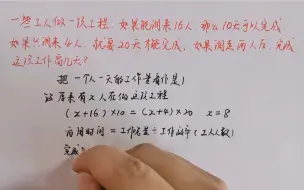 一些工人做一项工程,如果能调来16人,那么10天可以完成
如果只调来4人,就要20天才能完成,如果调走两人后,完成
这项工作需几天?
把一个人一天的工作量看作是1
设原来有x人在做这项工程
(x+16)×10=(x+4)×20 x=8
公式时间=工作总量÷工作效率(工人人数)
完成